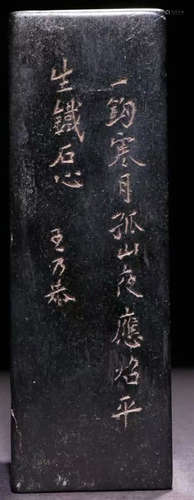 一鈎寒月孤山夜應焰平
生鐵石心 王乃恭